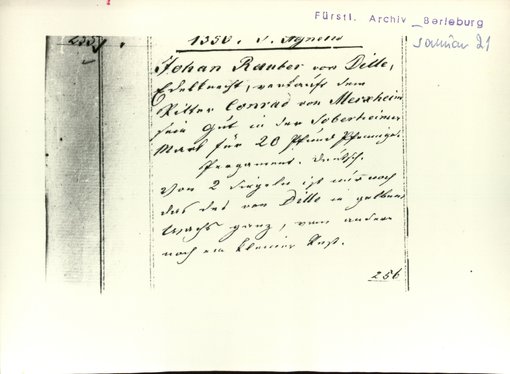 Fürstl. Archiv Berleburg
Januar 21
1350. s. Agnetis
Johan Rauber von Dille,
Edelknecht, verkauft dem
Ritter Conrad von Merxheim
sein Gut in der Soberheimer
Mark für 20 Pfund Pfennige.
Pergament. Deutsch.
Von 2 Siegeln ist nur noch
das des von Dille in gelbem
Wachs ganz, vom andern
noch ein kleiner Rest.
256